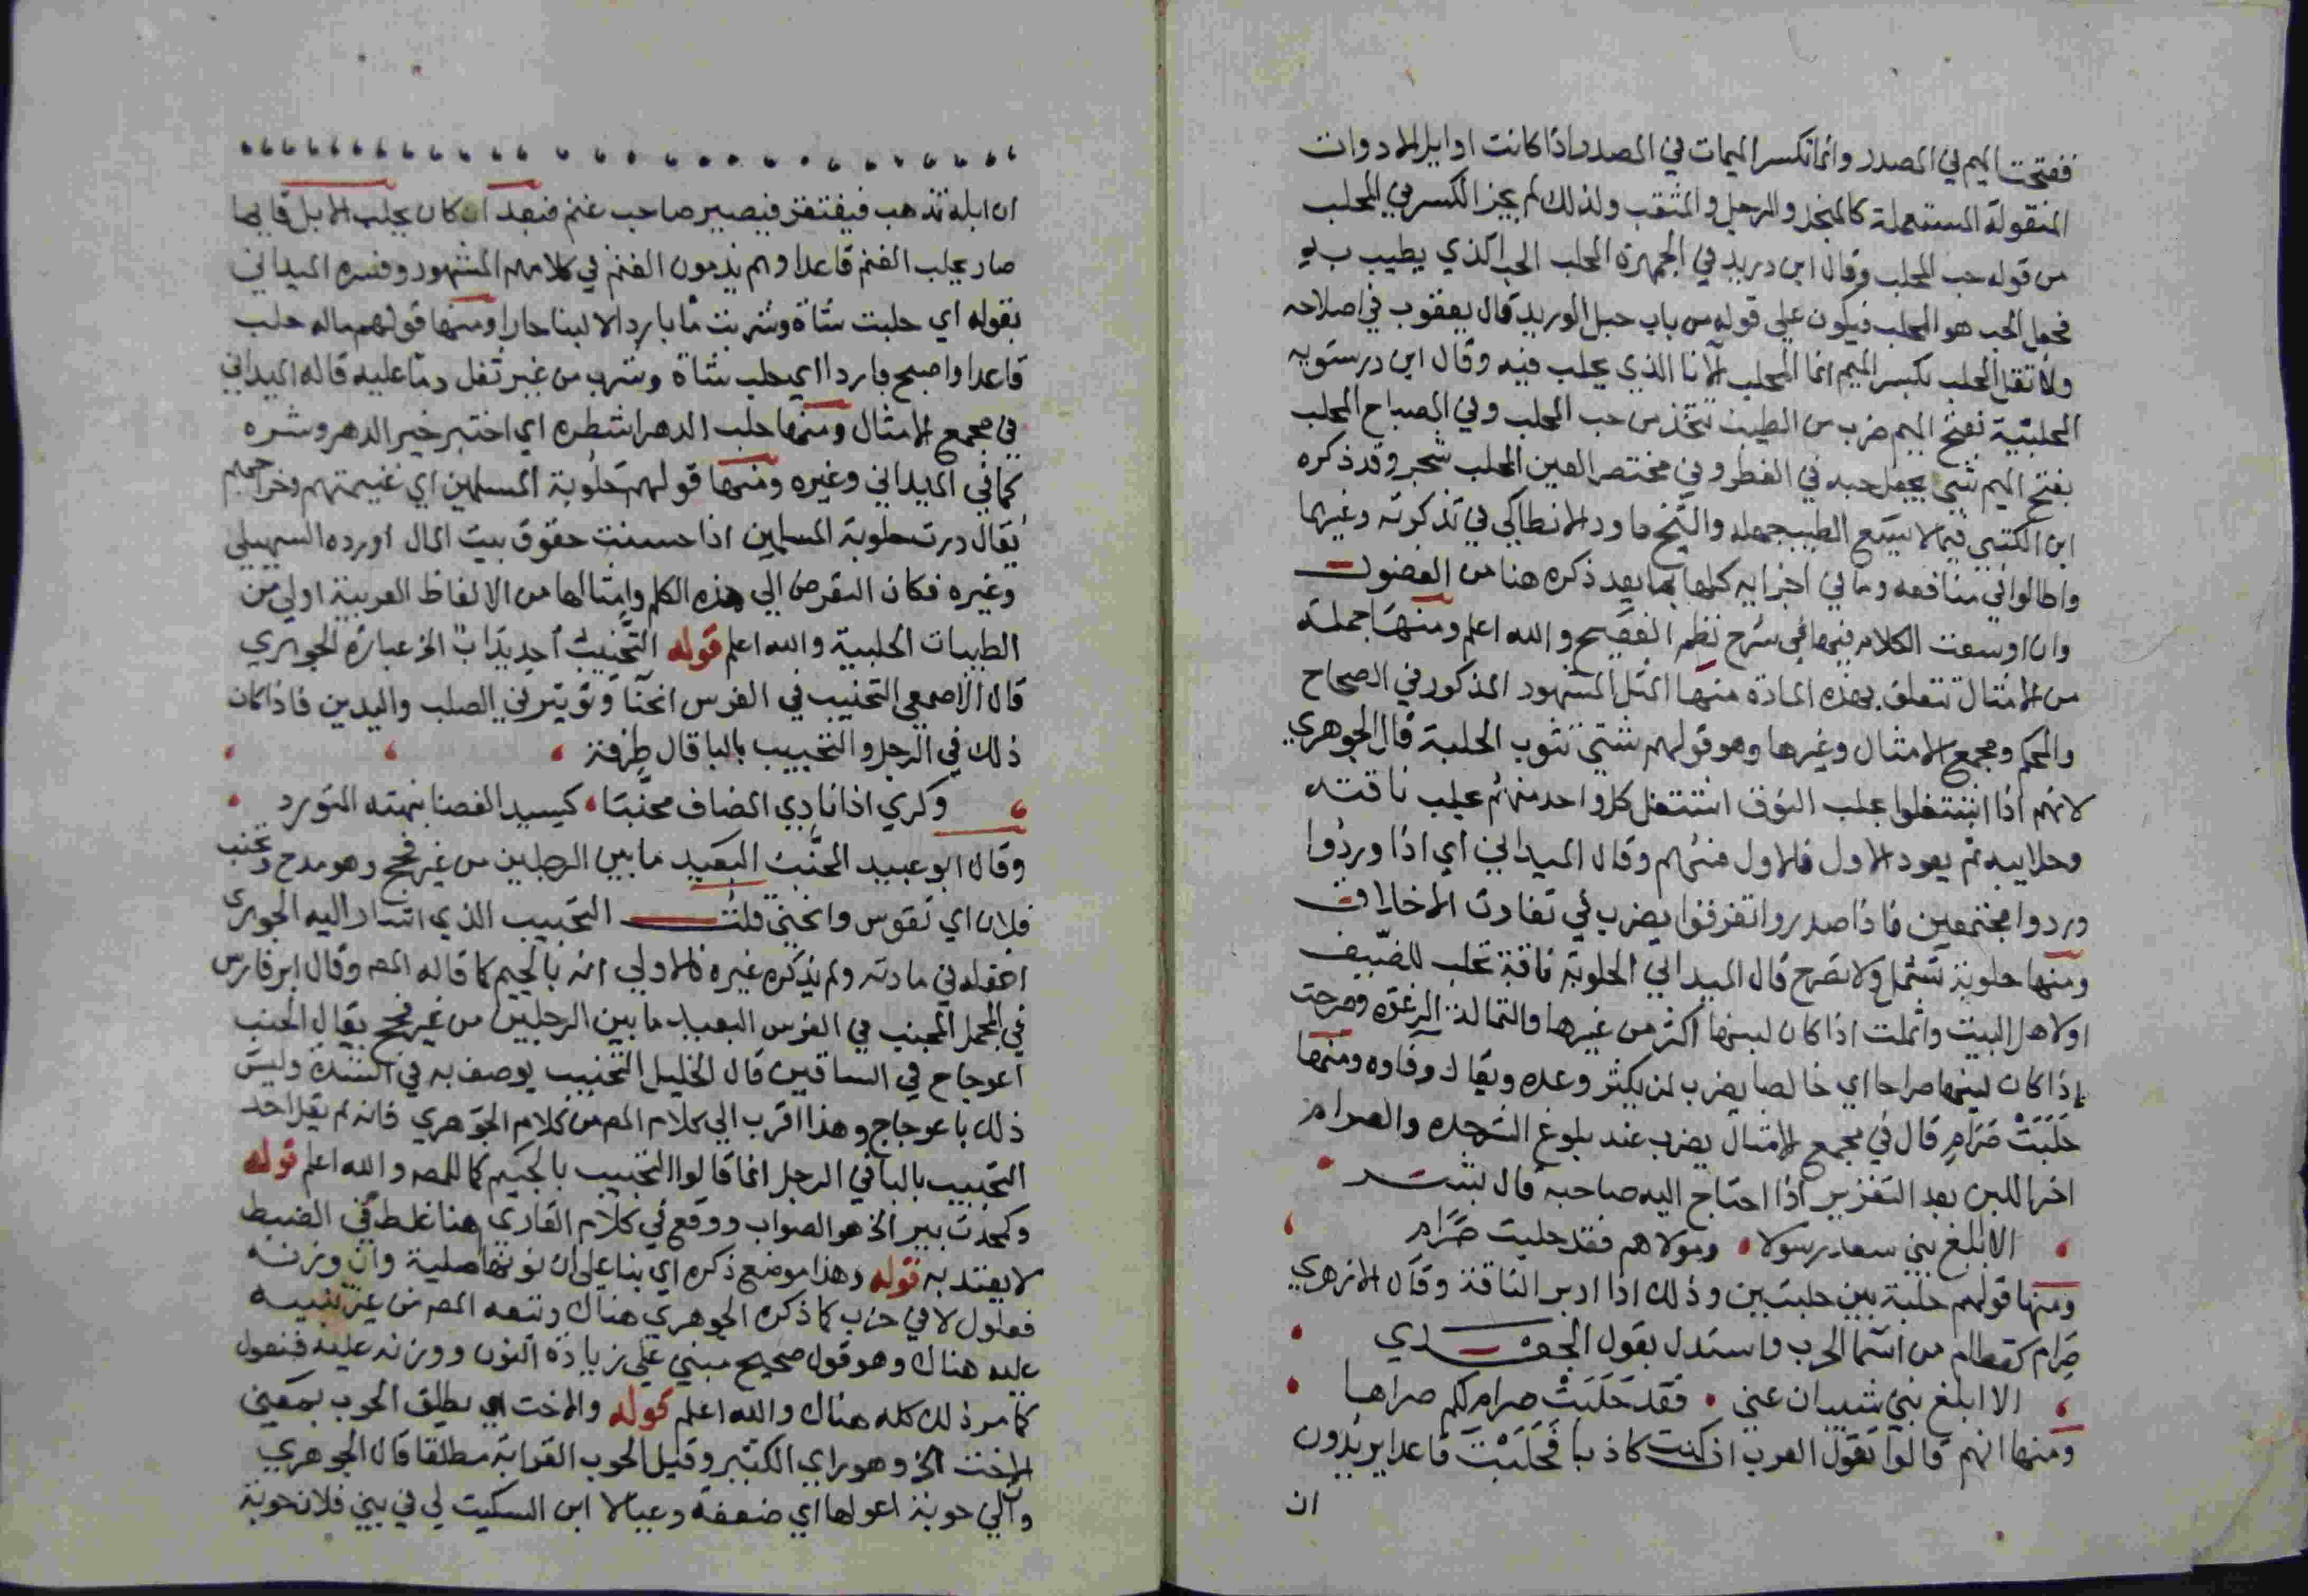 ففتحت الميم في المصدر وانما تكسر الميمات في المصدر اذا كانت اوايل الادوات
المنقولة المستعملة كالمنجل والمرجل والمثقب ولذلك لم يجز الكسر في المحلب
من قوله حب المحلب وقال ابن دريد في الجمهرة المحلب الحب الذي يطيب به
فجعل الحب هو المحلب فيكون على قوله من باب حبل الوريد قال يعقوب في اصلاحه
ولا تقل المحلب بكسر الميم انما المحلب الانا الذي يحلب فيه وقال ابن درستويه
المحلبية بفتح الميم ضرب من الطيب يتخذ من حب المحلب وفي المصباح المحلب
بفتح الميم شي يجعل حبه في العطر وفي مختصر العين المحلب شجر وقد ذكره
ابن الكتبي فيما لا يسع الطبيب جهله والشيخ داود الانطاكي في تذكرته وغيرهما
واطالوا في منافعه وما في اجزايه كلها بما يعد ذكره هنا من الفضول
وان اوسعت الكلام فيها في شرح نظم الفصيح والله اعلم ومنها جملة
من الامثال تتعلق بهذه المادة منها المثل المشهور المذكور في الصحاح
والمحكم ومجمع الامثال وغيرها وهو قولهم شتى تثوب الحلبة قال الجوهري
لانهم اذا اشتغلوا بحلب النوق اشتغل كل واحد منهم بحلب ناقته
وحلايبه ثم يعود الاول فالاول منهم وقال الميداني اي اذا وردوا
وردوا مجتمعين فاذا صدروا تفرقوا يضرب في تفاوت الاخلاق
ومنها حلوبة تثمل ولا تصرح قال الميداني الحلوبة ناقة تحلب للضيف
او لاهل البيت واثملت اذا كان لبنها اكثر من غيرها والثمالة الرغوة وصرحت
اذا كان لبنها صراحا اي خالصا يضرب لمن يكثر وعده ويقل وفاوه ومنها
حلبت صرام قال في مجمع الامثال يضرب عند بلوغ الشر حده والصرام
اخر اللبن بعد التغزير اذا احتاج اليه صاحبه قال بشر
الا ابلغ بني سعد رسولا ومولاهم فقد حلبت صرام
ومنها قولهم حلبة بين حلبتين وذلك اذا ادبر الناقة وقال الازهري
صرام كقطام من اسما الحرب واستدل بقول الجعدي
الا ابلغ بني شيبان عني فقد حلبت صرام لكم صراها
ومنها انهم قالوا تقول العرب ان كنت كاذبا فحلبت قاعدا يريدون
ان
ان ابله تذهب فيفتقر فيصير صاحب غنم فبعد ان كان يحلب الابل قايما
صار يحلب الغنم قاعدا وهم يذمون الغنم في كلامهم المشهور وفسره الميداني
بقوله اي حلبت شاة وشربت ما باردا لا لبنا حارا ومنها قولهم ماله حلب
قاعدا واصبح باردا اي حلب شاة وشرب من غير ثفل دعا عليه قاله الميداني
في مجمع الامثال ومنها حلب الدهر اشطره اي اختبر خير الدهر وشره
كما في الميداني وغيره ومنها قولهم حلوبة المسلمين اي غنيمتهم وخراجهم
يقال درت حلوبة المسلمين اذا حسنت حقوق بيت المال اورده السهيلي
وغيره فكان التعرض الى هذه الكلم وامثالها من الالفاظ العربية اولى من
الطبيات الحلبية والله اعلم قوله التحنيب احديداب الخ عبارة الجوهري
قال الاصمعي التحنيب في الفرس انحنا وتوتير في الصلب واليدين فاذا كان
ذلك في الرجل والتجنيب بالبا قال طرفة
وكري اذا نادى المضاف محنبا كسيد الغضا نبهته المتورد
وقال ابو عبيد المحنب البعيد ما بين الرجلين من غير فحج وهو مدح وتحنب
فلان اي تقوس وانحنى قلت التجنيب الذي اشار اليه الجوهري
اغفله في مادته ولم يذكره غيره فالاولى انه بالجيم كما قاله المص وقال ابن فارس
في المجمل المحنب في الفرس البعيد ما بين الرجلين من غير فحج يقال الحنب
اعوجاج في الساقين قال الخليل التحنيب يوصف به في الشدة وليس
ذلك باعوجاج وهذا اقرب الى كلام المص من كلام الجوهري فانه لم يقل احد
التجنيب بالبا في الرجل انما قالوا التجنيب بالجيم كما للمص والله اعلم قوله
وكمحدث بير الخ هو الصواب ووقع في كلام القاري هنا غلط في الضبط
لا يعتد به قوله وهذا موضع ذكره اي بنا على ان نونها اصلية وان وزنه
فعلول لا في حزب كما ذكره الجوهري هناك وتبعه المص من غير تنبيه
عليه هناك وهو قول صحيح مبني على زيادة النون ووزنه عليه فنعول
كما مر ذلك كله هناك والله اعلم قوله والاخت اي يطلق الحوب بمعنى
الاخت الخ وهو راي الكثير وقيل الحوب القرابة مطلقا قال الجوهري
والي حوبة اعولها اي ضعفة وعيالا ابن السكيت لي في بني فلان حوبة